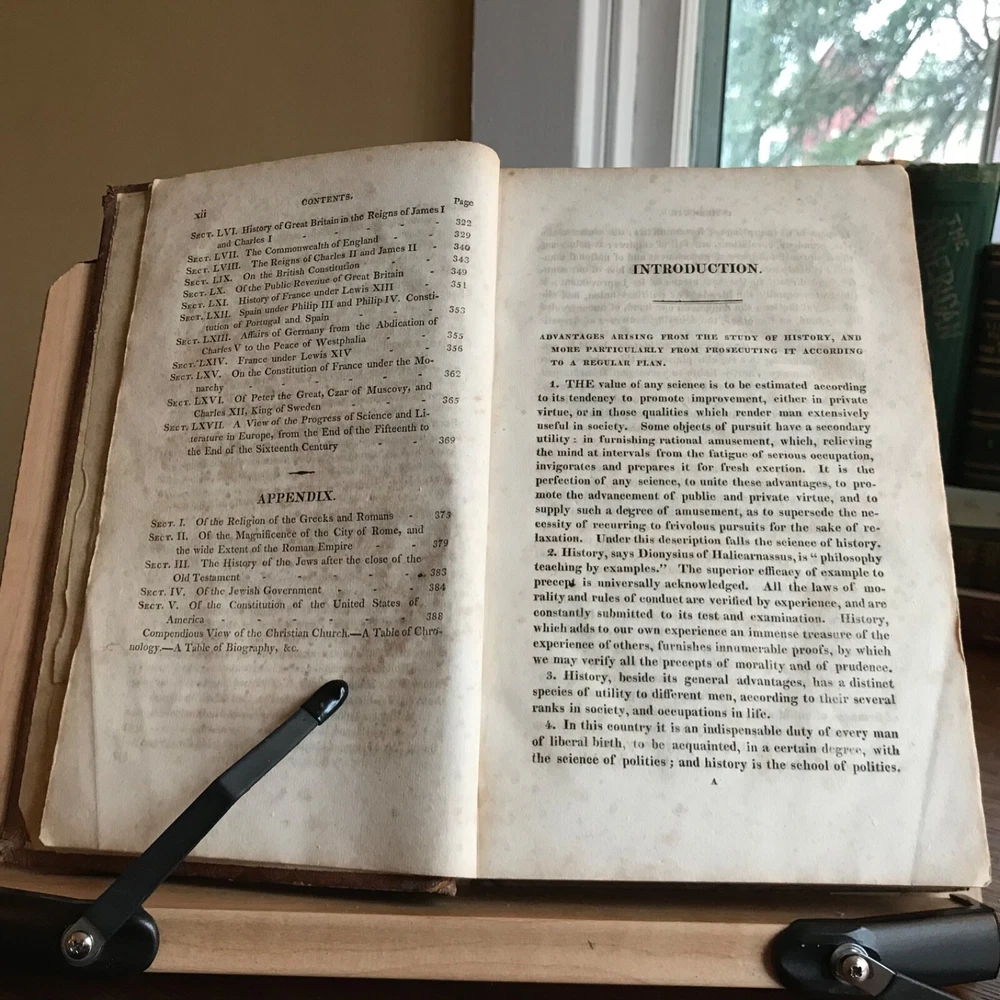 xii
CONTENTS.
Page
SECT. LVI. History of Great Britain in the Reigns of James I
and Charles I - - - - - 322
SECT. LVII. The Commonwealth of England - - 329
SECT. LVIII. The Reigns of Charles II and James II - 340
SECT. LIX. On the British Constitution - - - 343
SECT. LX. Of the Public Revenue of Great Britain - 349
SECT. LXI. History of France under Lewis XIII - 351
SECT. LXII. Spain under Philip III and Philip IV. Consti-
tution of Portugal and Spain - - - - 353
SECT. LXIII. Affairs of Germany from the Abdication of
Charles V to the Peace of Westphalia - - 355
SECT. LXIV. France under Lewis XIV - - - 356
SECT. LXV. On the Constitution of France under the Mo-
narchy - - - - - - 362
SECT. LXVI. Of Peter the Great, Czar of Muscovy, and
Charles XII, King of Sweden - - - 365
SECT. LXVII. A View of the Progress of Science and Li-
terature in Europe, from the End of the Fifteenth to
the End of the Sixteenth Century - - - 369
APPENDIX.
SECT. I. Of the Religion of the Greeks and Romans - 373
SECT. II. Of the Magnificence of the City of Rome, and
the wide Extent of the Roman Empire - - 379
SECT. III. The History of the Jews after the close of the
Old Testament - - - - - 383
SECT. IV. Of the Jewish Government - - - 384
SECT. V. Of the Constitution of the United States of
America - - - - - - 388
Compendious View of the Christian Church.—A Table of Chro-
nology.—A Table of Biography, &c.
INTRODUCTION.
ADVANTAGES ARISING FROM THE STUDY OF HISTORY, AND
MORE PARTICULARLY FROM PROSECUTING IT ACCORDING
TO A REGULAR PLAN.
1. THE value of any science is to be estimated according
to its tendency to promote improvement, either in private
virtue, or in those qualities which render man extensively
useful in society. Some objects of pursuit have a secondary
utility: in furnishing rational amusement, which, relieving
the mind at intervals from the fatigue of serious occupation,
invigorates and prepares it for fresh exertion. It is the
perfection of any science, to unite these advantages, to pro-
mote the advancement of public and private virtue, and to
supply such a degree of amusement, as to supersede the ne-
cessity of recurring to frivolous pursuits for the sake of re-
laxation. Under this description falls the science of history.
2. History, says Dionysius of Halicarnassus, is “philosophy
teaching by examples.” The superior efficacy of example to
precept is universally acknowledged. All the laws of mo-
rality and rules of conduct are verified by experience, and are
constantly submitted to its test and examination. History,
which adds to our own experience an immense treasure of the
experience of others, furnishes innumerable proofs, by which
we may verify all the precepts of morality and of prudence.
3. History, beside its general advantages, has a distinct
species of utility to different men, according to their several
ranks in society, and occupations in life.
4. In this country it is an indispensable duty of every man
of liberal birth, to be acquainted, in a certain degree, with
the science of politics; and history is the school of politics.
A
THE